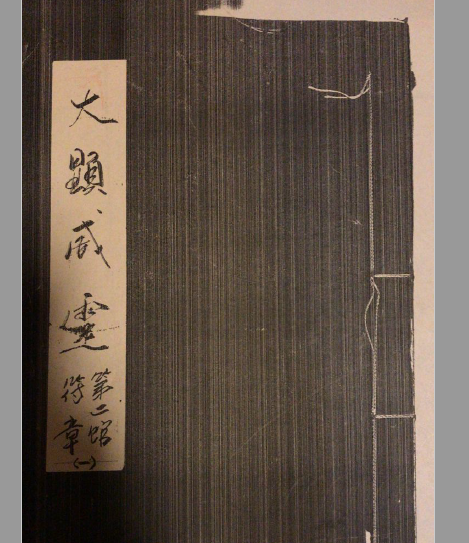 大顯威靈
第二館
符章
(一)